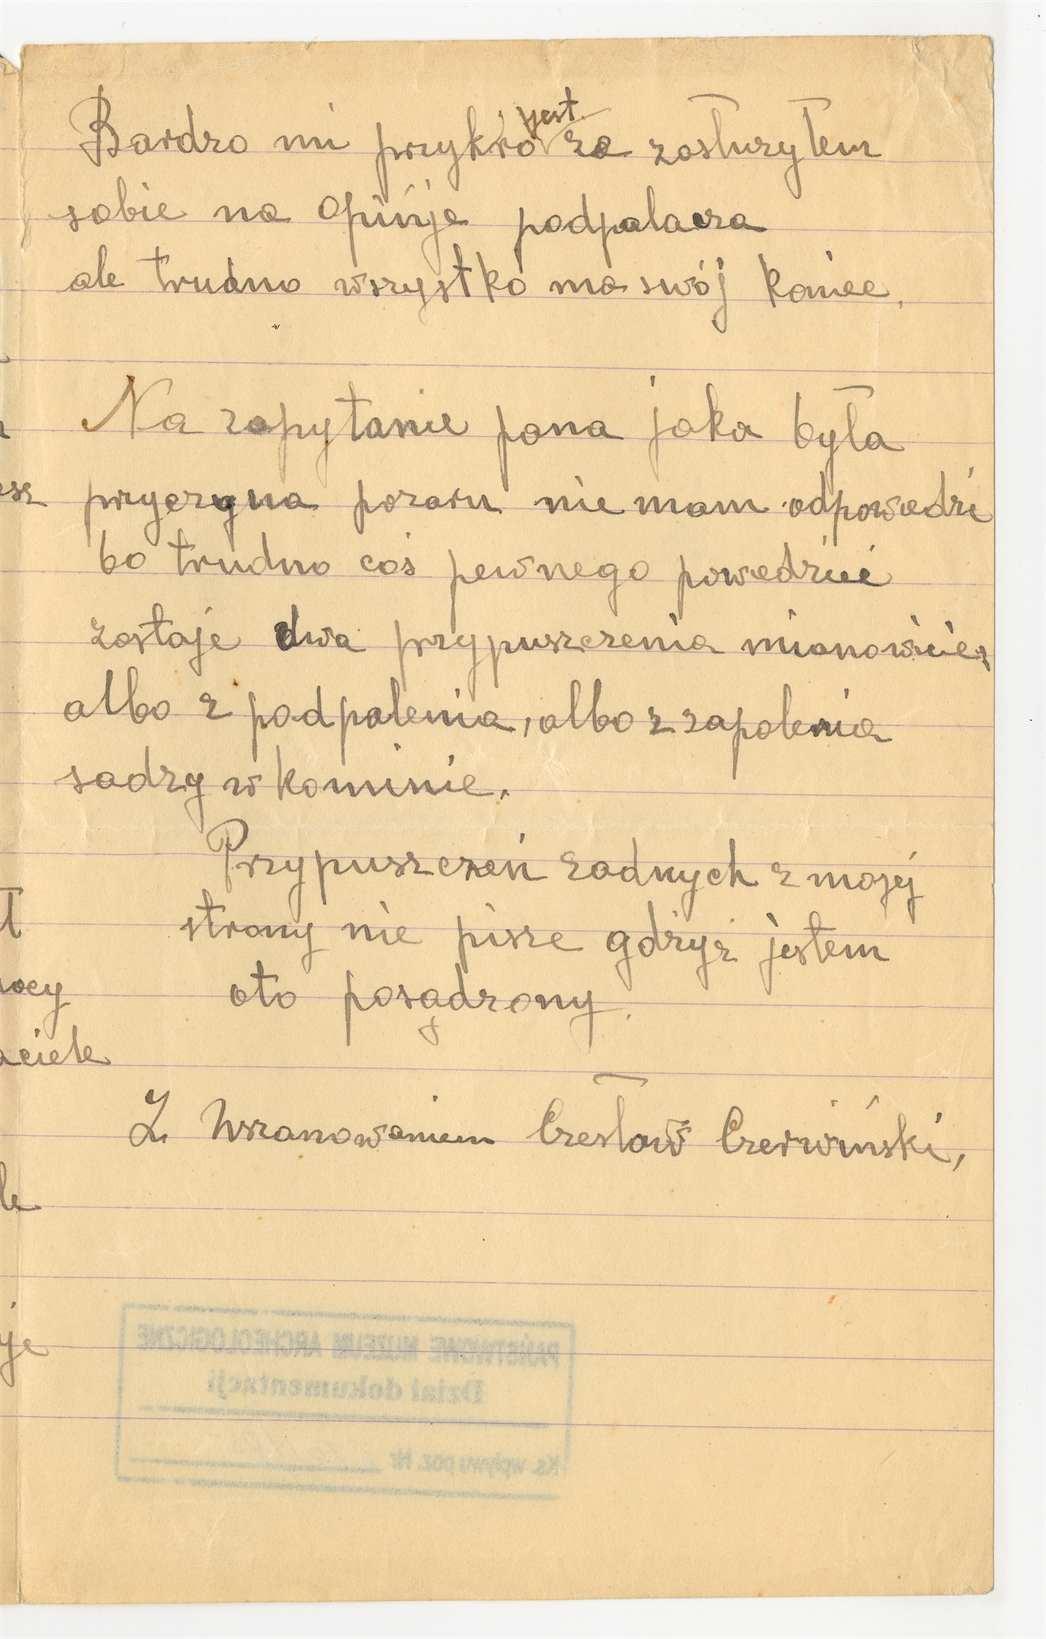 Bardzo mi przykro jest że zasłużyłem
sobie na Opińje podpalacza
ale trudno wszystko ma swój koniec.
Na zapytanie pana jaka była
przyczyna pożaru nie mam odpowiedzi
bo trudno coś pewnego powiedzieć
zostaje dwa przypuszczenia mianowicie,
albo z podpalenia, albo z zapalenia
sadzy w kominie.
Przypuszczeń żadnych z mojej
strony nie pisze gdzyż jestem
oto posądzony.
Z. Wszanowaniem Czesław Czerwiński,
PAŃSTWOWE MUZEUM ARCHEOLOGICZNE
Dział dokumentacji
Ks. wpływu poz. Nr